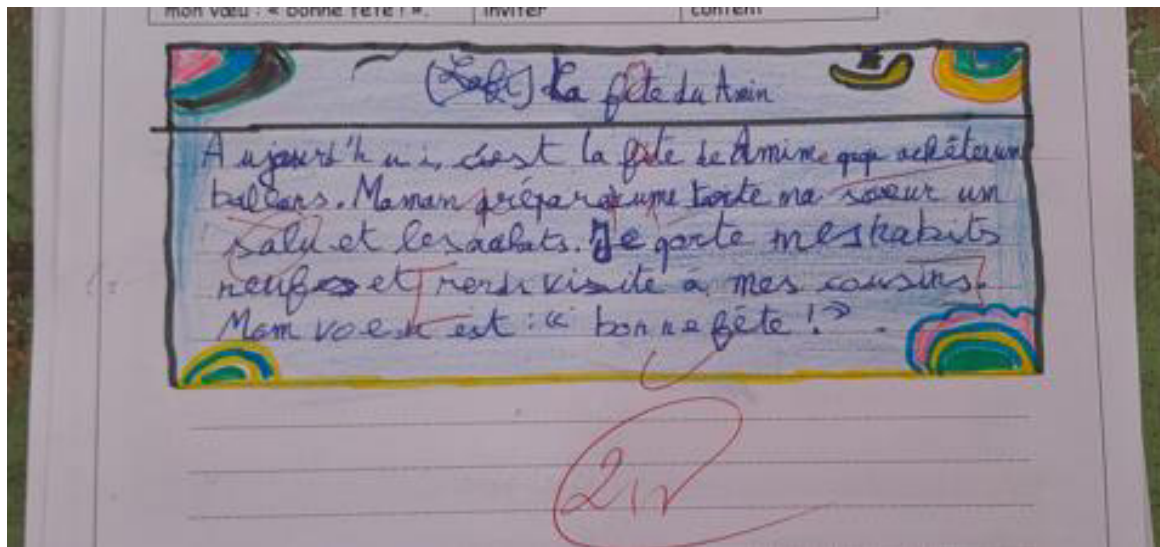 mon vœu : « bonne fête ! ». inviter content
La fête du Amin
Aujourd'hui, c'est la fête de Amine papa achète un
ballons. Maman prépare une torte ma soeur um
salu et les achats. Je porte mes habits
neufs et rend visite à mes cousins.
Mom voeu est : « bonne fête ! » .
2,5